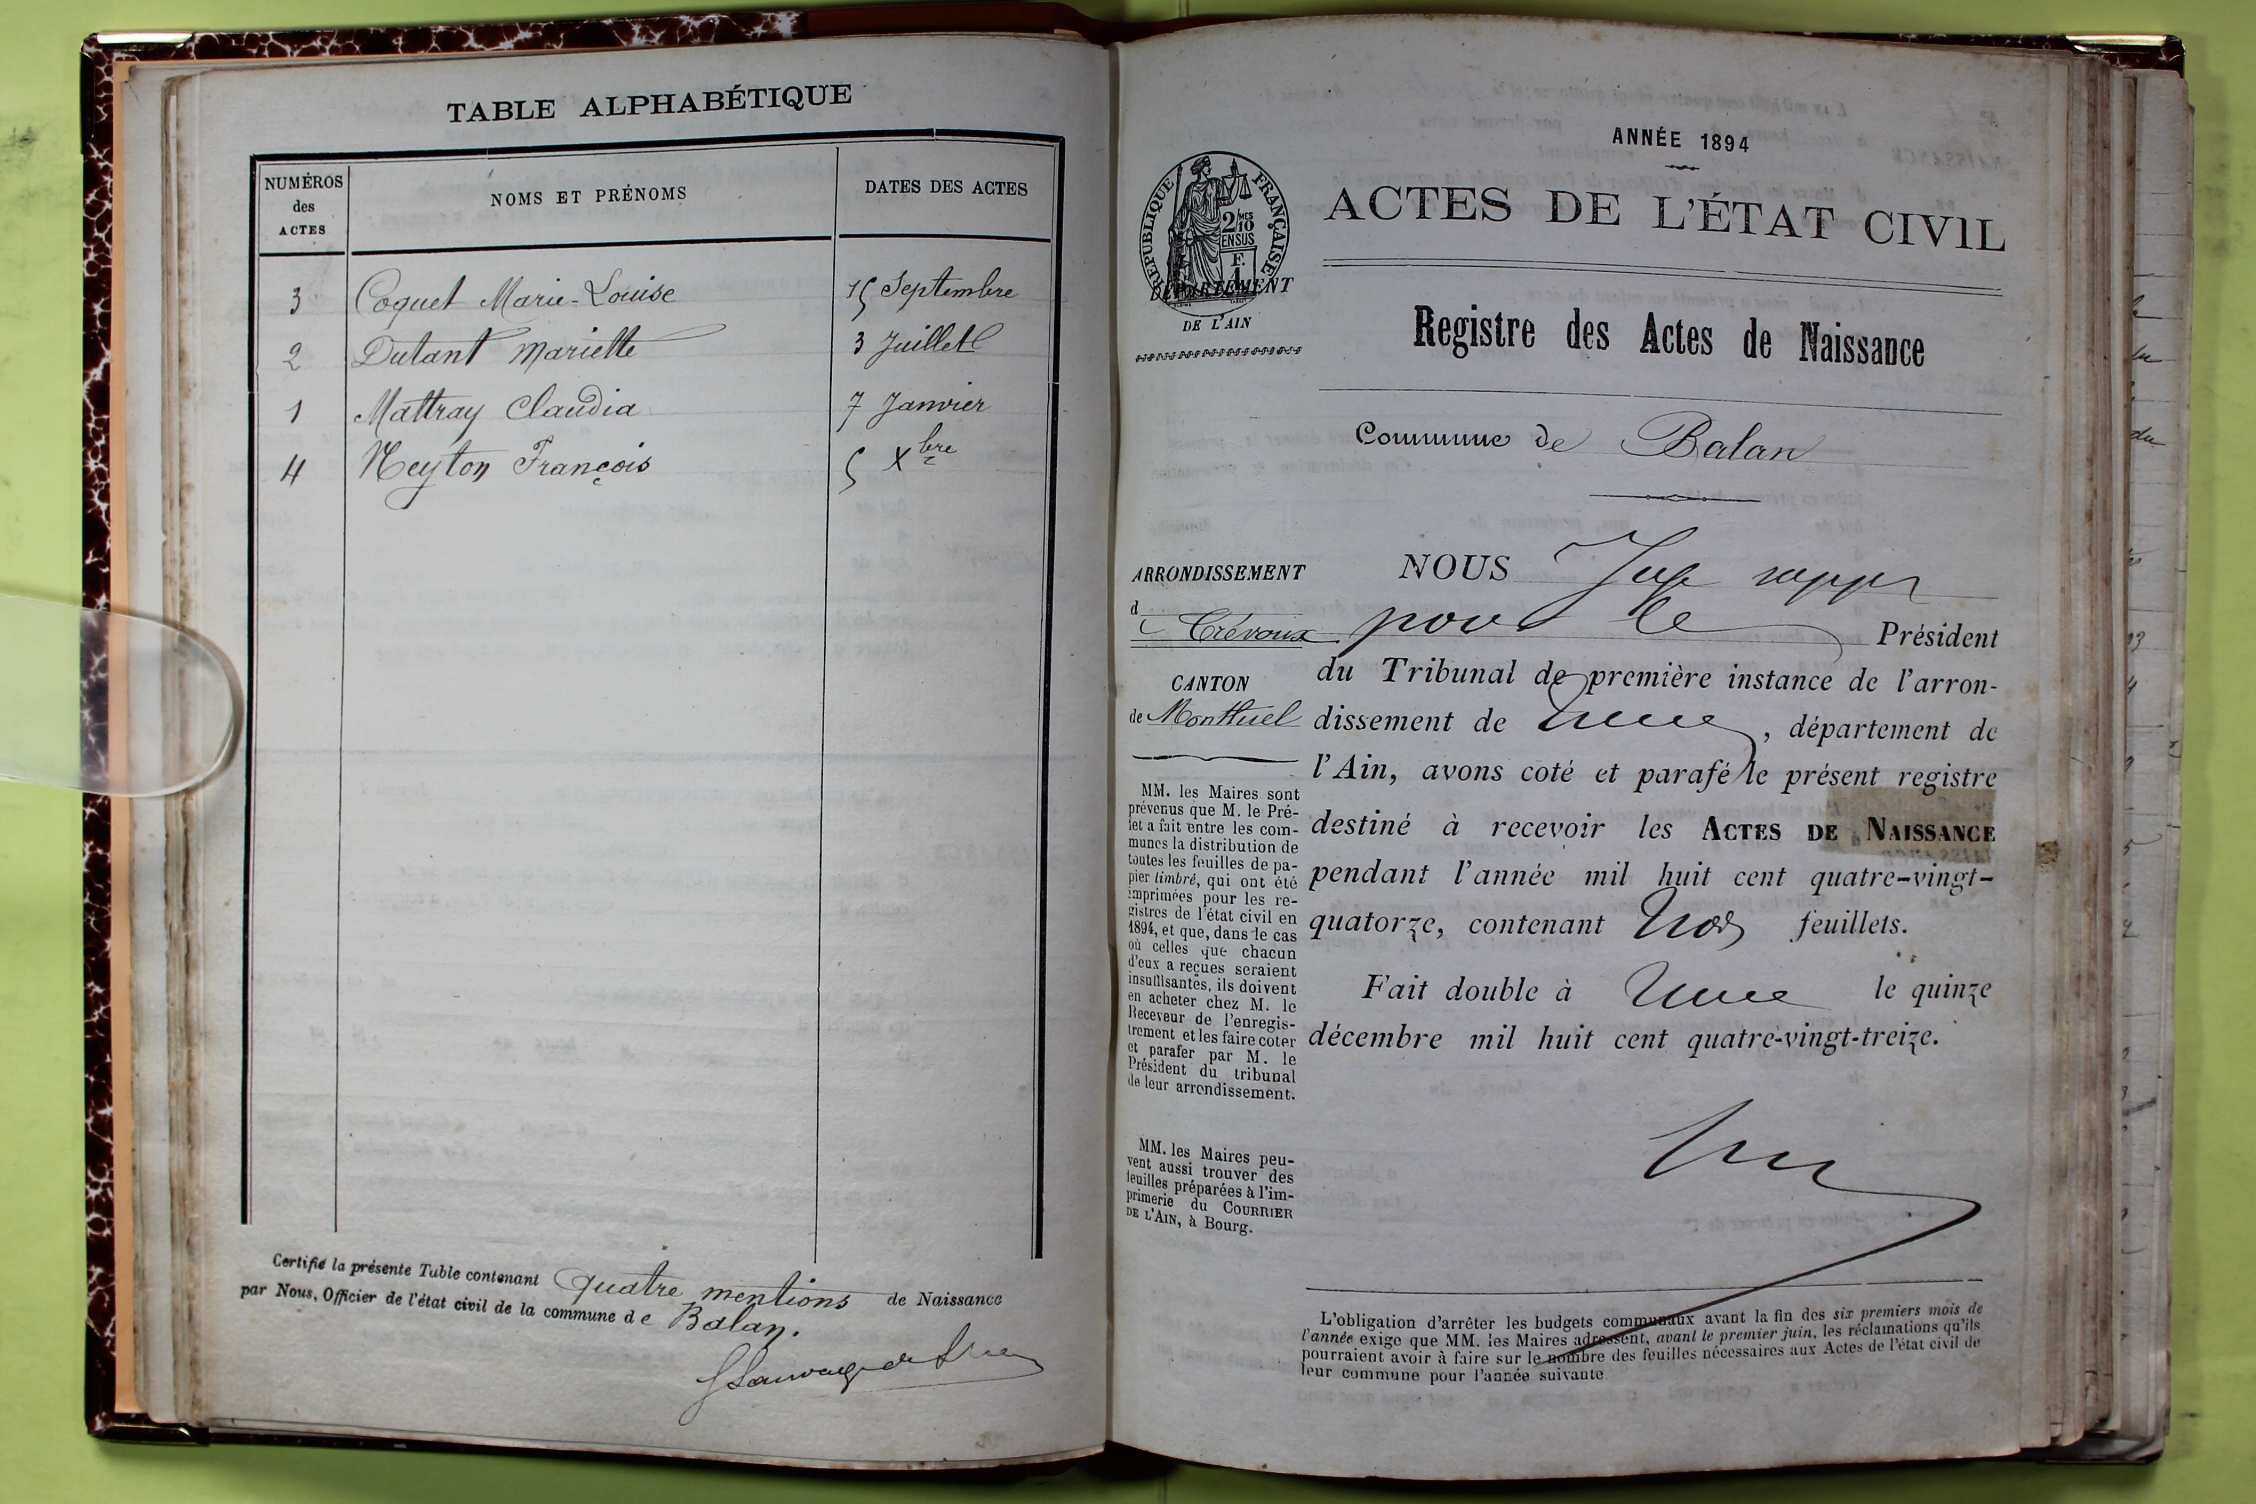 TABLE ALPHABÉTIQUE
NUMÉROS
des
ACTES
NOMS ET PRÉNOMS
DATES DES ACTES
3 Coquet Marie-Louise 15 Septembre
2 Dutant Mariette 3 Juillet
1 Mattray Claudia 7 Janvier
4 Neyton François 5 Xbre
Certifié la présente Table contenant quatre mentions de Naissance
par Nous, Officier de l'état civil de la commune de Balan.
ANNÉE 1894
RÉPUBLIQUE FRANÇAISE
2 MES
10
EN SUS
F.
1
DÉPARTEMENT
DE L'AIN
ACTES DE L'ÉTAT CIVIL
Registre des Actes de Naissance
Commune de Balan
ARRONDISSEMENT
d
Trévoux
CANTON
de Montluel
MM. les Maires sont
prévenus que M. le Pré-
fet a fait entre les com-
munes la distribution de
toutes les feuilles de pa-
pier timbré, qui ont été
imprimées pour les re-
gistres de l'état civil en
1894, et que, dans le cas
où celles que chacun
d'eux a reçues seraient
insuffisantes, ils doivent
en acheter chez M. le
Receveur de l'enregis-
trement et les faire coter
et parafer par M. le
Président du tribunal
de leur arrondissement.
MM. les Maires peu-
vent aussi trouver des
feuilles préparées à l'im-
primerie du COURRIER
DE L'AIN, à Bourg.
NOUS Juge
pour le Président
du Tribunal de première instance de l'arron-
dissement de , département de
l'Ain, avons coté et parafé le présent registre
destiné à recevoir les ACTES DE NAISSANCE
pendant l'année mil huit cent quatre-vingt-
quatorze, contenant trois feuillets.
Fait double à le quinze
décembre mil huit cent quatre-vingt-treize.
L'obligation d'arrêter les budgets communaux avant la fin des six premiers mois de
l'année exige que MM. les Maires adressent, avant le premier juin, les réclamations qu'ils
pourraient avoir à faire sur le nombre des feuilles nécessaires aux Actes de l'état civil de
leur commune pour l'année suivante